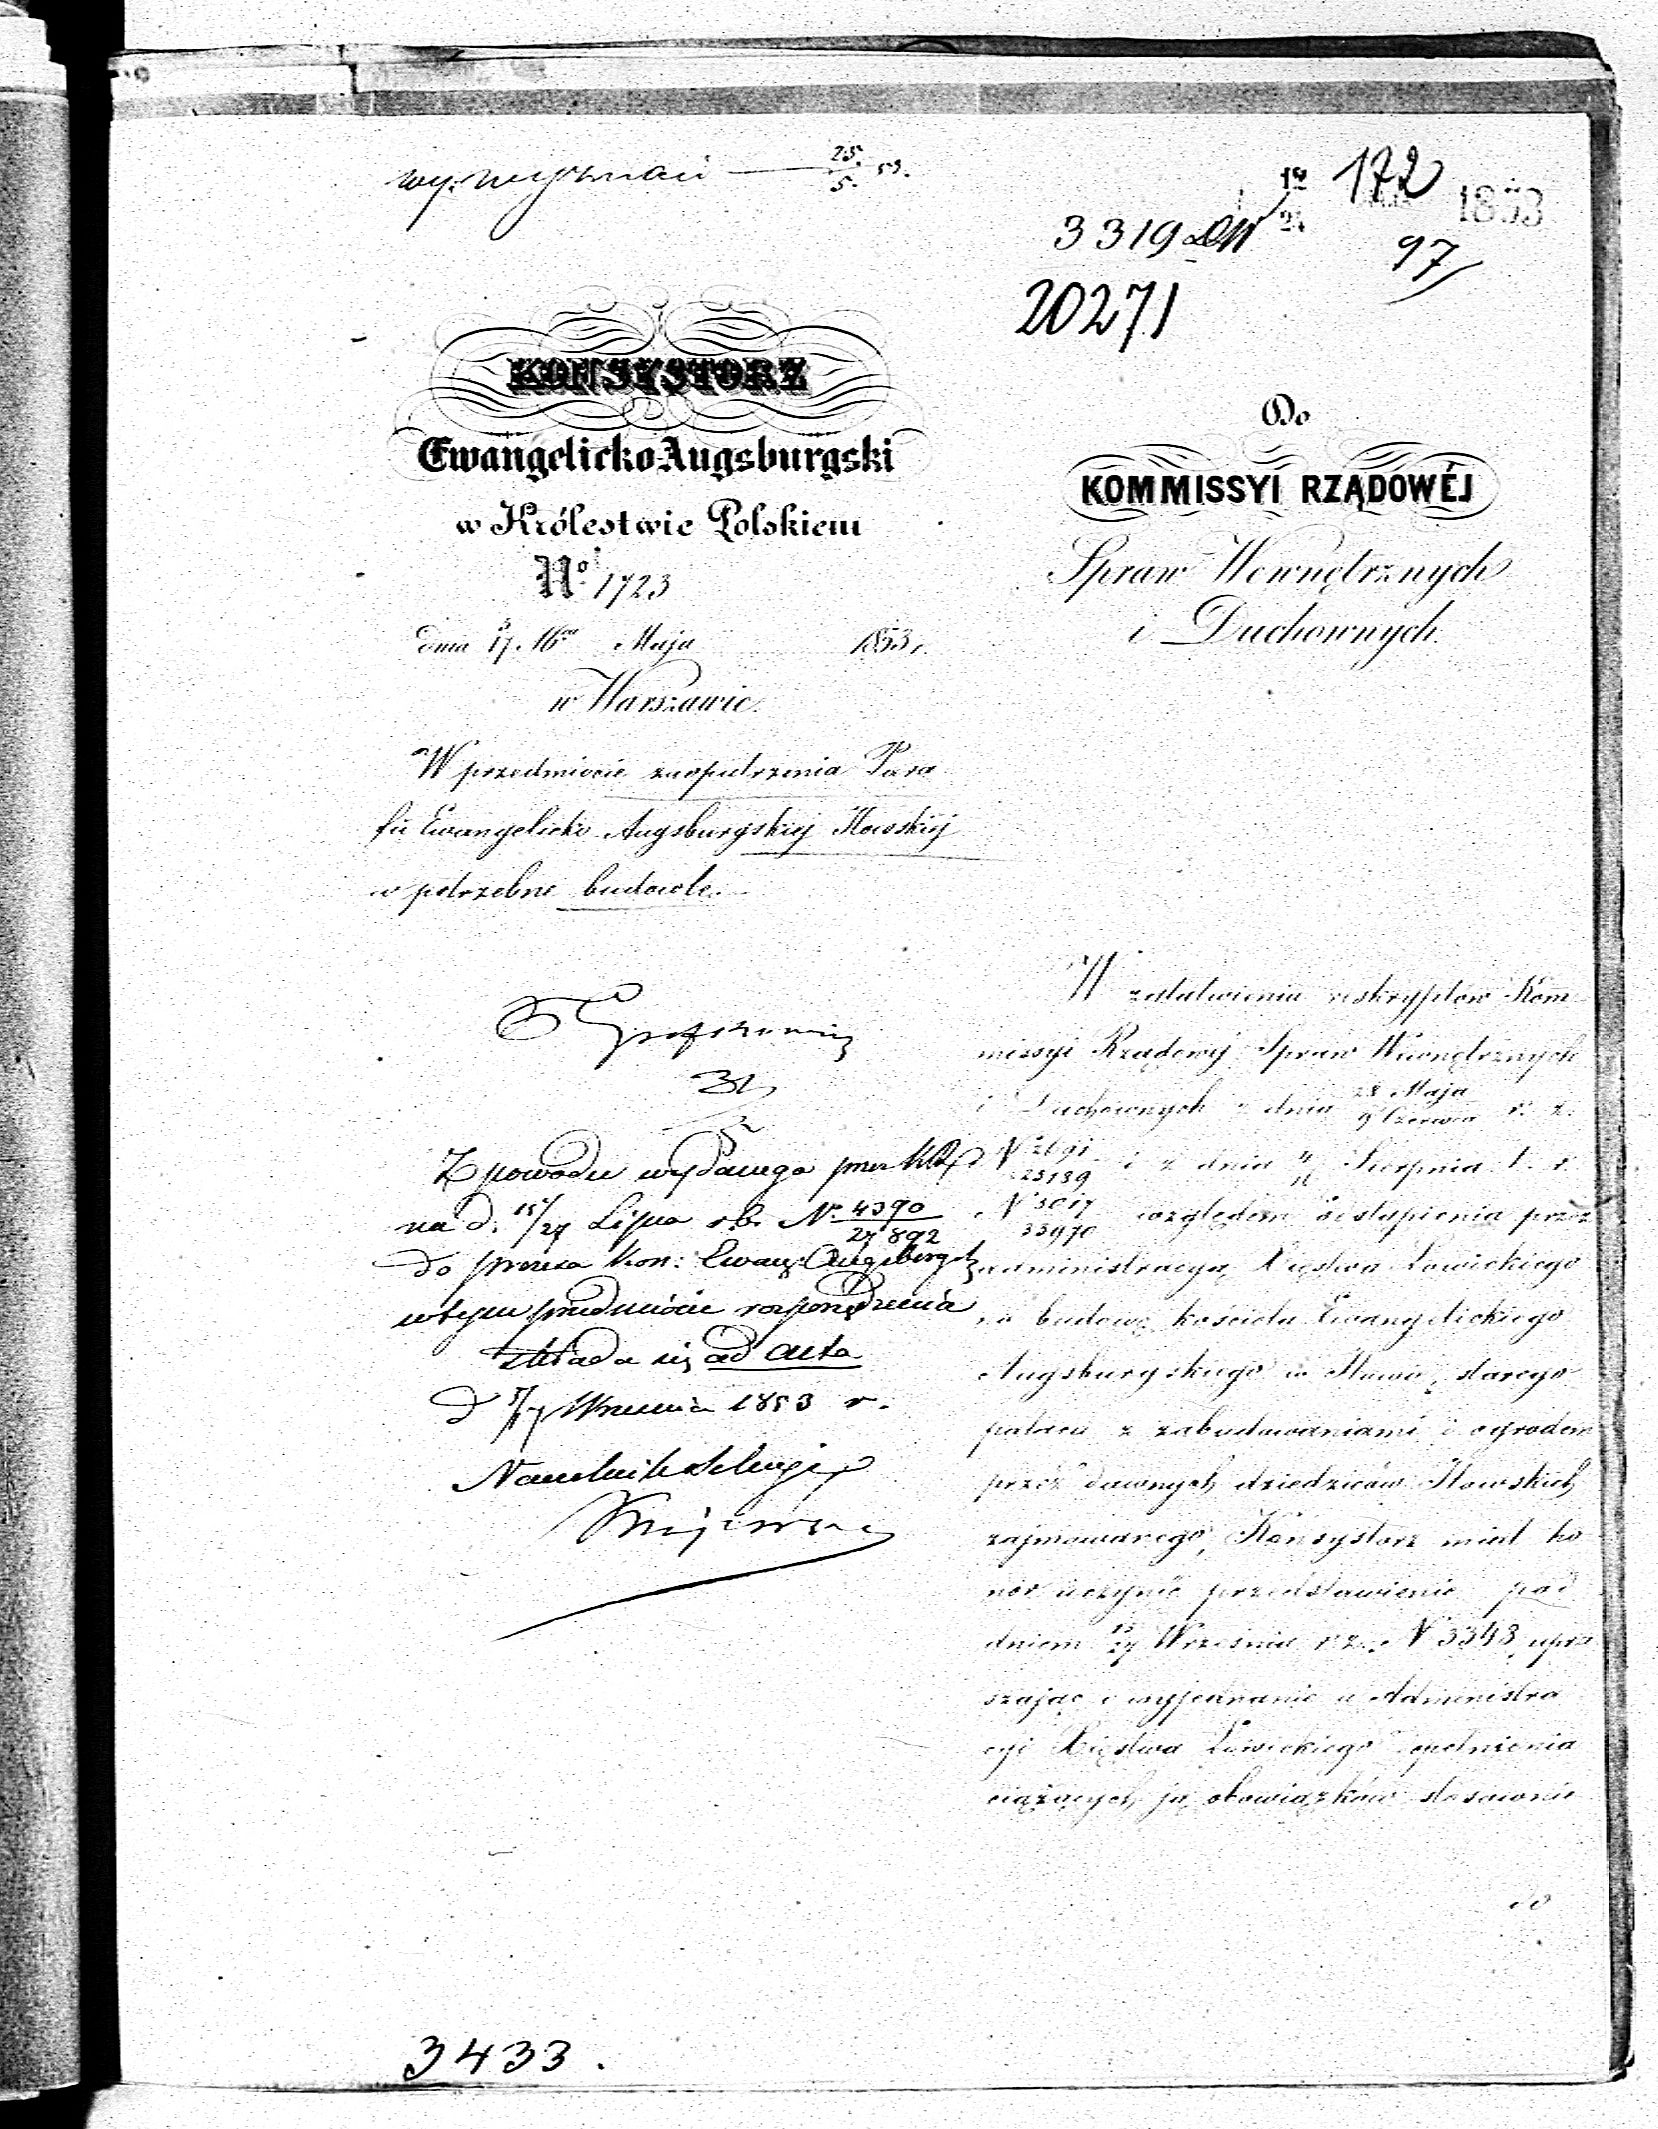 wyz: wyznań 25./5. 53.
12/24 172 1853
3319 DW
97
20271
KONSYSTORZ
Ewangelicko-Augsburgski
w Królestwie Polskiem
No 1723
dnia 5/17 Maja 1853 r.
w Warszawie.
W przedmiocie zaopatrzenia Para
fii Ewangelicko Augsburgskiej Iłowskiej
w potrzebne budowle.
Do
KOMMISSYI RZĄDOWÉJ
Spraw Wewnętrznych
i Duchownych.
31/5
Z powodu wydanego przez KR
na d. 15/27 Lipca r.b. No. 4390/27892
do prezesa Kon: Ewang: Augsburg
w tym przedmiocie rozporządzenia
składa się ad acta
d 5/17 Września 1853 r.
Naczelnik Sekcyi
3433.
W załatwieniu reskryptów Kom
missyi Rządowej Spraw Wewnętrznych
i Duchownych z dnia 28 Maja/9 Czerwca r. z.
N 2691/25139 i z dnia Sierpnia t. r.
N 3017/33970 względem odstąpienia przez
administracyą Księstwa Łowickiego
na budowę kościoła Ewangelickiego
Augsburgskiego w Iłowie, starego
pałacu z zabudowaniami i ogrodem
przez dawnych dziedziców Iłowskich
zajmowanego, Konsystorz miał ho
nor uczynić przedstawienie pod
dniem 15/27 Września r. z. N 3348, upra
szając o wyjednanie u Administra
cyi Księstwa Łowickiego spełnienia
ciążących ją obowiązków stosownie
do